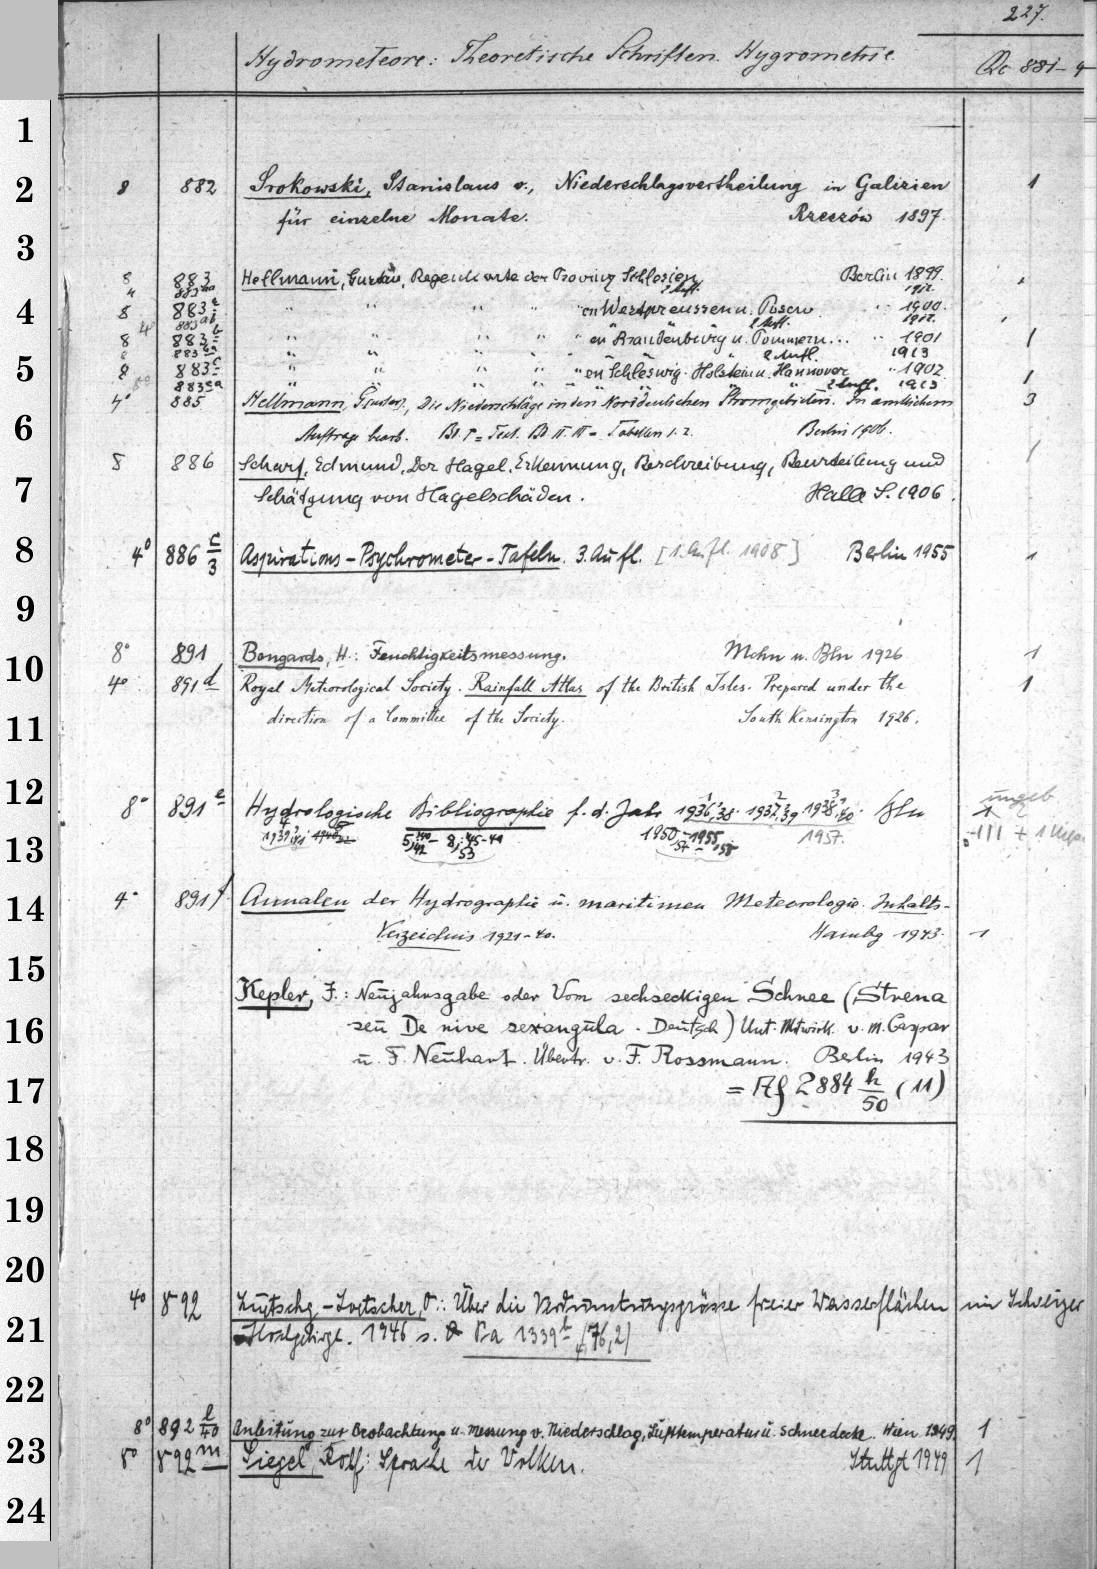 227.
Hydrometeore: Theoretische Schriften. Hygrometrie.
Qc 881-9
1
2
3
4
5
6
7
8
9
10
11
12
13
14
15
16
17
18
19
20
21
22
23
24
8 882 Srokowski, Stanislaus v., Niederschlagsvertheilung in Galizien 1
für einzelne Monate. Rzeszów 1897.
8 883 Hellmann, Gustav, Regenkarte der Provinz Schlesien Berlin 1899.
" 883 aa 2 Aufl. 1912.
8 883 a " " " " " en Westpreussen u. Posen " " 1900.
4 883 ab 2 Aufl. 1912.
8 883 b " " " " " en Brandenburg u. Pommern... " 1901 1
883 2 Aufl. 1913
8 883 c " " " " " en Schleswig-Holstein u. Hannover " 1902 1
8° 883 ca " " " " " " 2 Aufl. 1913
4° 885 Hellmann, Gustav, Die Niederschläge in den Norddeutschen Stromgebieten. In amtlichem 3
Auftrage bearb. Bd. I = Text. Bd II. III = Tabellen 1. 2. Berlin 1906.
8 886 Scharf, Edmund, Der Hagel, Erkennung, Beschreibung, Beurteilung und 1
Schätzung von Hagelschäden. Halle S. 1906.
4° 886 c/3 Aspirations-Psychrometer-Tafeln. 3. Aufl. [1. Aufl. 1908] Berlin 1955 1
8° 891 Bongards, H.: Feuchtigkeitsmessung. Mchn u. Bln 1926 1
4° 891 d Royal Meteorological Society. Rainfall Atlas of the British Isles. Prepared under the 1
direction of a Committee of the Society. South Kensington 1926.
ungeb
8° 891 e Hydrologische Bibliographie f. d. Jahr 1936,38. 1937,39. 1938,40. Bln
1957.
4° 891 f Annalen der Hydrographie u. maritimen Meteorologie. Inhalts-
Verzeichnis 1921-40. Hambg 1943. 1
Kepler, J.: Neujahrsgabe oder Vom sechseckigen Schnee (Strena
seu De nive sexangula. Deutsch) Unt. Mitwirk. v. M. Caspar
u. F. Neuhart. Übertr. v. F. Rossmann. Berlin 1943
= Af 2884 h/50 (11)
4° 892 Lütschg-Loetscher, O.: Über die Verdunstungsgrösse freier Wasserflächen im Schweizer
Hochgebirge. 1946 s. Pa 1339 b (76,2)
8° 892 l/40 Anleitung zur Beobachtung u. Messung v. Niederschlag, Lufttemperatur u. Schneedecke. Wien 1949. 1
8° 892 m Siegel, Rolf: Sprache der Wolken. Stuttgt 1949 1